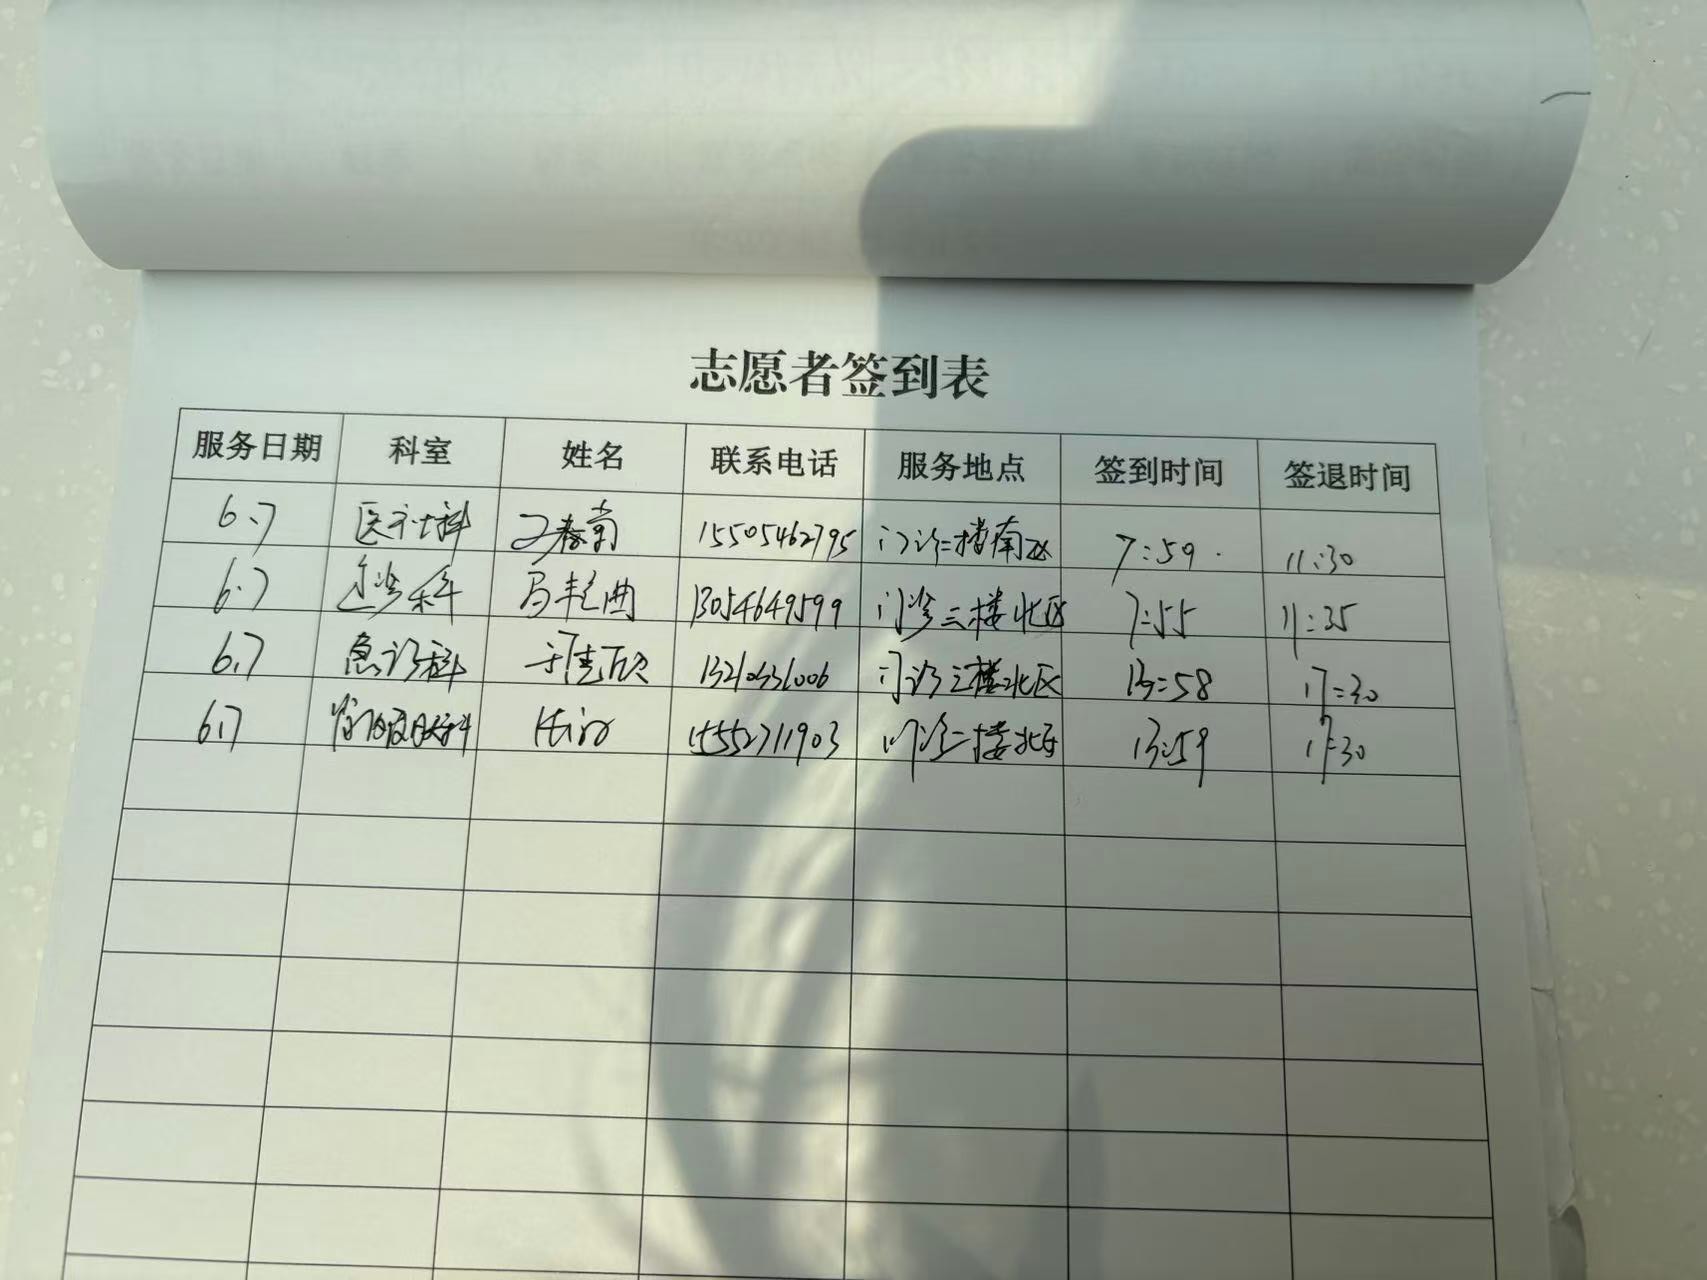 志愿者签到表
服务日期 科室 姓名 联系电话 服务地点 签到时间 签退时间
6.7 15505462795 门诊二楼南区 7:59 11:30
6.7 13054649599 门诊三楼北区 7:55 11:35
6.7 急诊科 门诊三楼北区 13:58 17:30
6.7 15552711903 门诊二楼北区 13:59 17:30